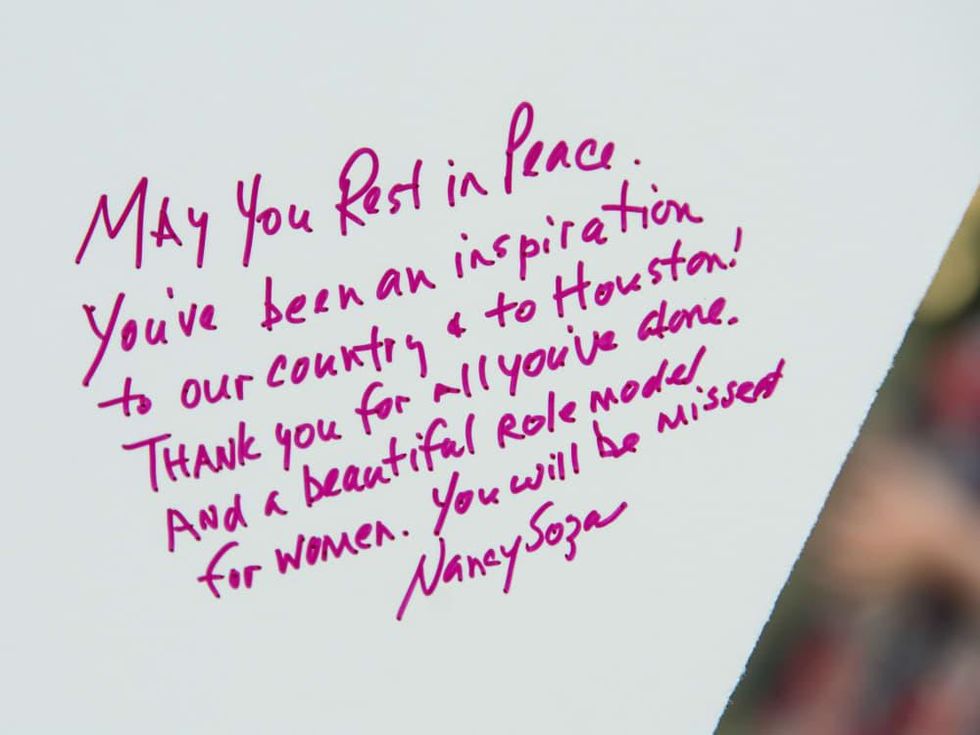 MAy You Rest in Peace.
You've been an inspiration
to our country & to Houston!
THANK you for all you've done.
ANd a beautiful Role model
for women. You will be missed
Nancy Soza